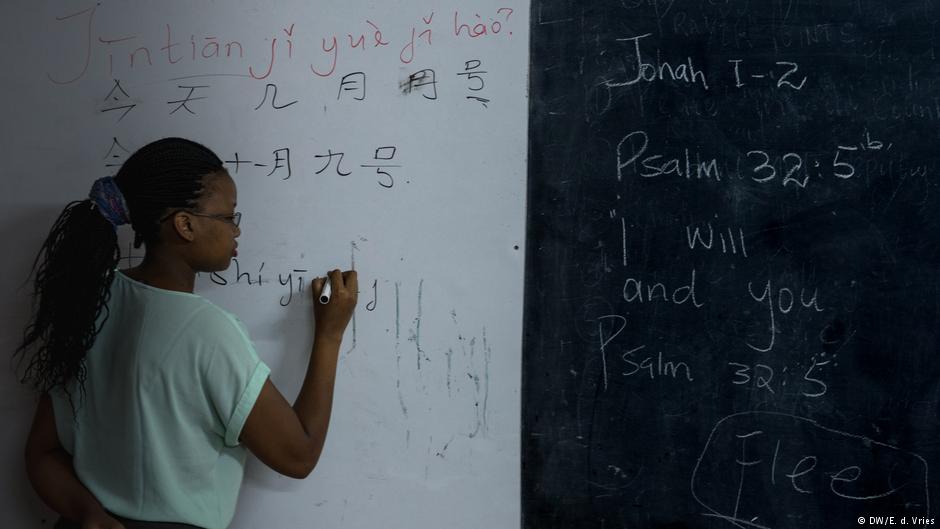 Jīntiān jǐ yuè jǐ hào?
今天几月号
今十一月九号.
shí yī
Jonah 1-2
Psalm 32:5b
"I will
and you
Psalm 32:5
Flee
© DW/E. d. Vries